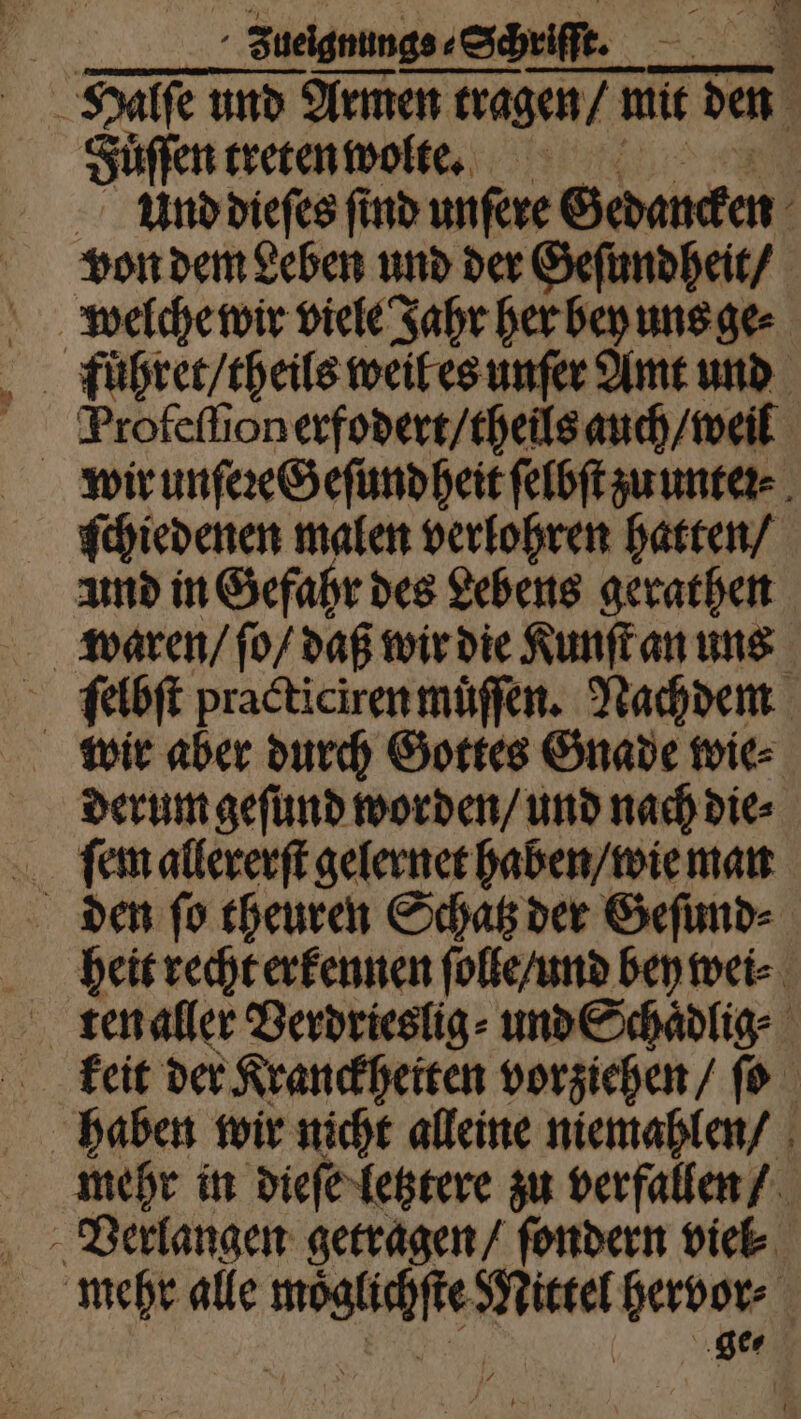 Zueignungs⸗Schrifft.
Halſe und Armen tragen/ mit den
Fuͤſſen treten wolte.
Und dieſes ſind unſere Gedancken
von dem Leben und der Geſundheit/
welche wir viele Jahr her bey uns ge⸗
fuͤhret/theils weil es unſer Amt und
Profeſſion erfodert/theils auch/weil
wir unſere Geſundheit ſelbſt zu unter⸗
ſchiedenen malen verlohren hatten/
und in Gefahr des Lebens gerathen
waren/ ſo/ daß wir die Kunſt an uns
ſelbſt practiciren muͤſſen. Nachdem
wir aber durch Gottes Gnade wie⸗
derum geſund worden/ und nach die⸗
ſem allererſt gelernet haben/wie man
den ſo theuren Schatz der Geſund⸗
heit recht erkennen ſolle/und bey wei⸗
ten aller Verdrieslig⸗ und Schaͤdlig⸗
keit der Kranckheiten vorziehen/ ſo
haben wir nicht alleine niemahlen/
mehr in dieſe letztere zu verfallen/
Verlangen getragen/ ſondern viel⸗
mehr alle moͤglichſte Mittel hervor⸗
ge⸗